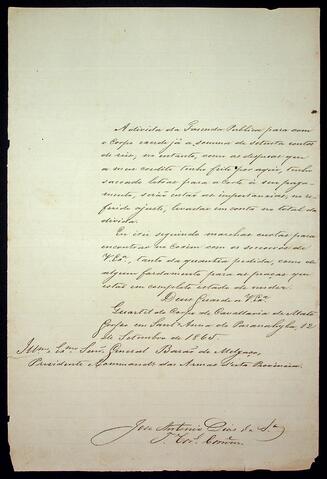 A divida da Fazenda Publica para com
o Corpo excede já a somma de setenta contos
de reis, no entanto, como as despesas que
a meu credito tenho feito por aqui, tenho
saccado letras para a Corte á seu paga-
mento, serão estas de importancias, no re-
ferido ajuste, levadas em conta no total da
divida.
Eu irei seguindo marchas curtas para
encontrar no Coxim com os soccorros de
V. Exª, tanto da quantia pedida, como de
algum fardamento para as praças que
estão em completo estado de nudez.
Deus Guarde a V. Exª
Quartel do Corpo de Cavallaria de Mato
Grosso em Sant-Anna do Paranahyba, 12
de Setembro de 1865.
Illmo. Exmo. Senr. General Barão de Melgaço,
Presidente e Commande. das Armas desta Provincia.
José Antonio Dias da Sª
T. Cel. Comm.